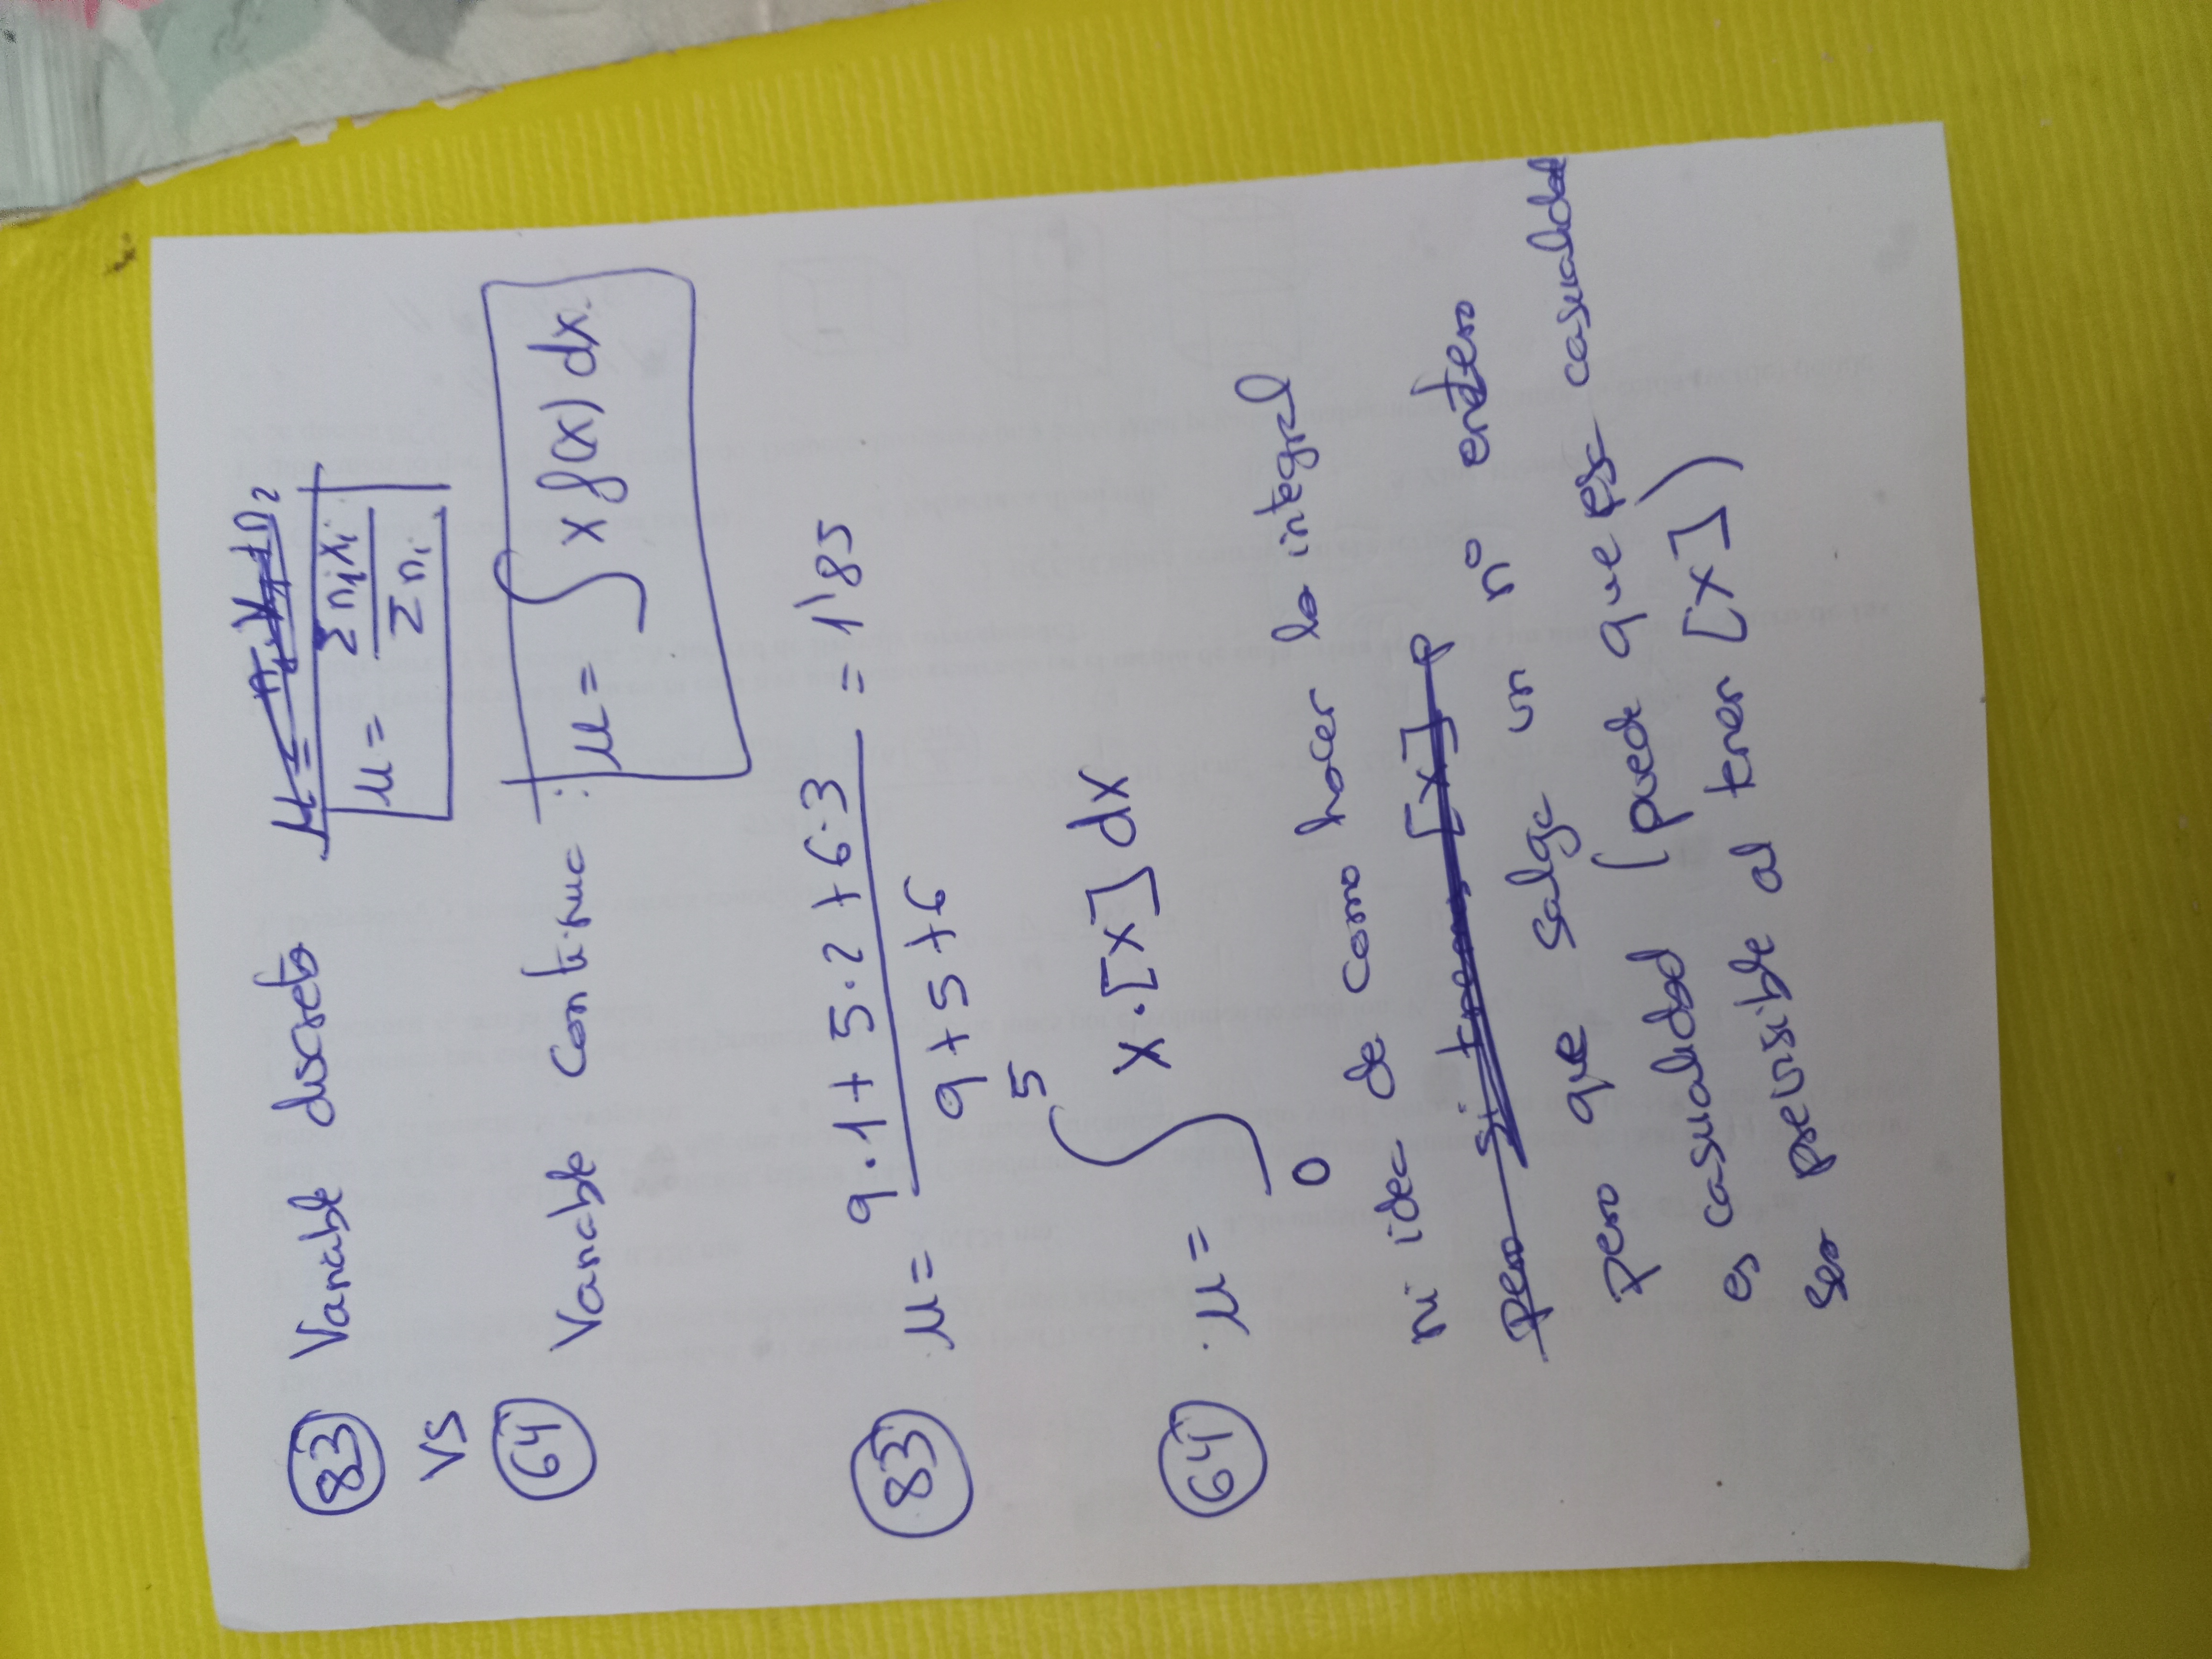 83 Variable discreta
μ = Σ nᵢxᵢ / Σ nᵢ
vs
64 Variable continua : μ = ∫ x f(x) dx.
83 μ = 9·1+5·2+6·3 / 9+5+6 = 1'85
64 μ = ∫₀⁵ x·[x] dx
ni idea de como hacer la integral
Pero si tenemos [x]
Pero que salga un nº entero
es casualidad (puede que esa casualidad
sea previsible al tener [x])